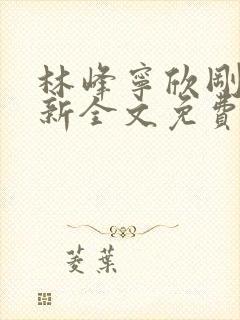 林峰寧欣剛
新全文免費
菱葉